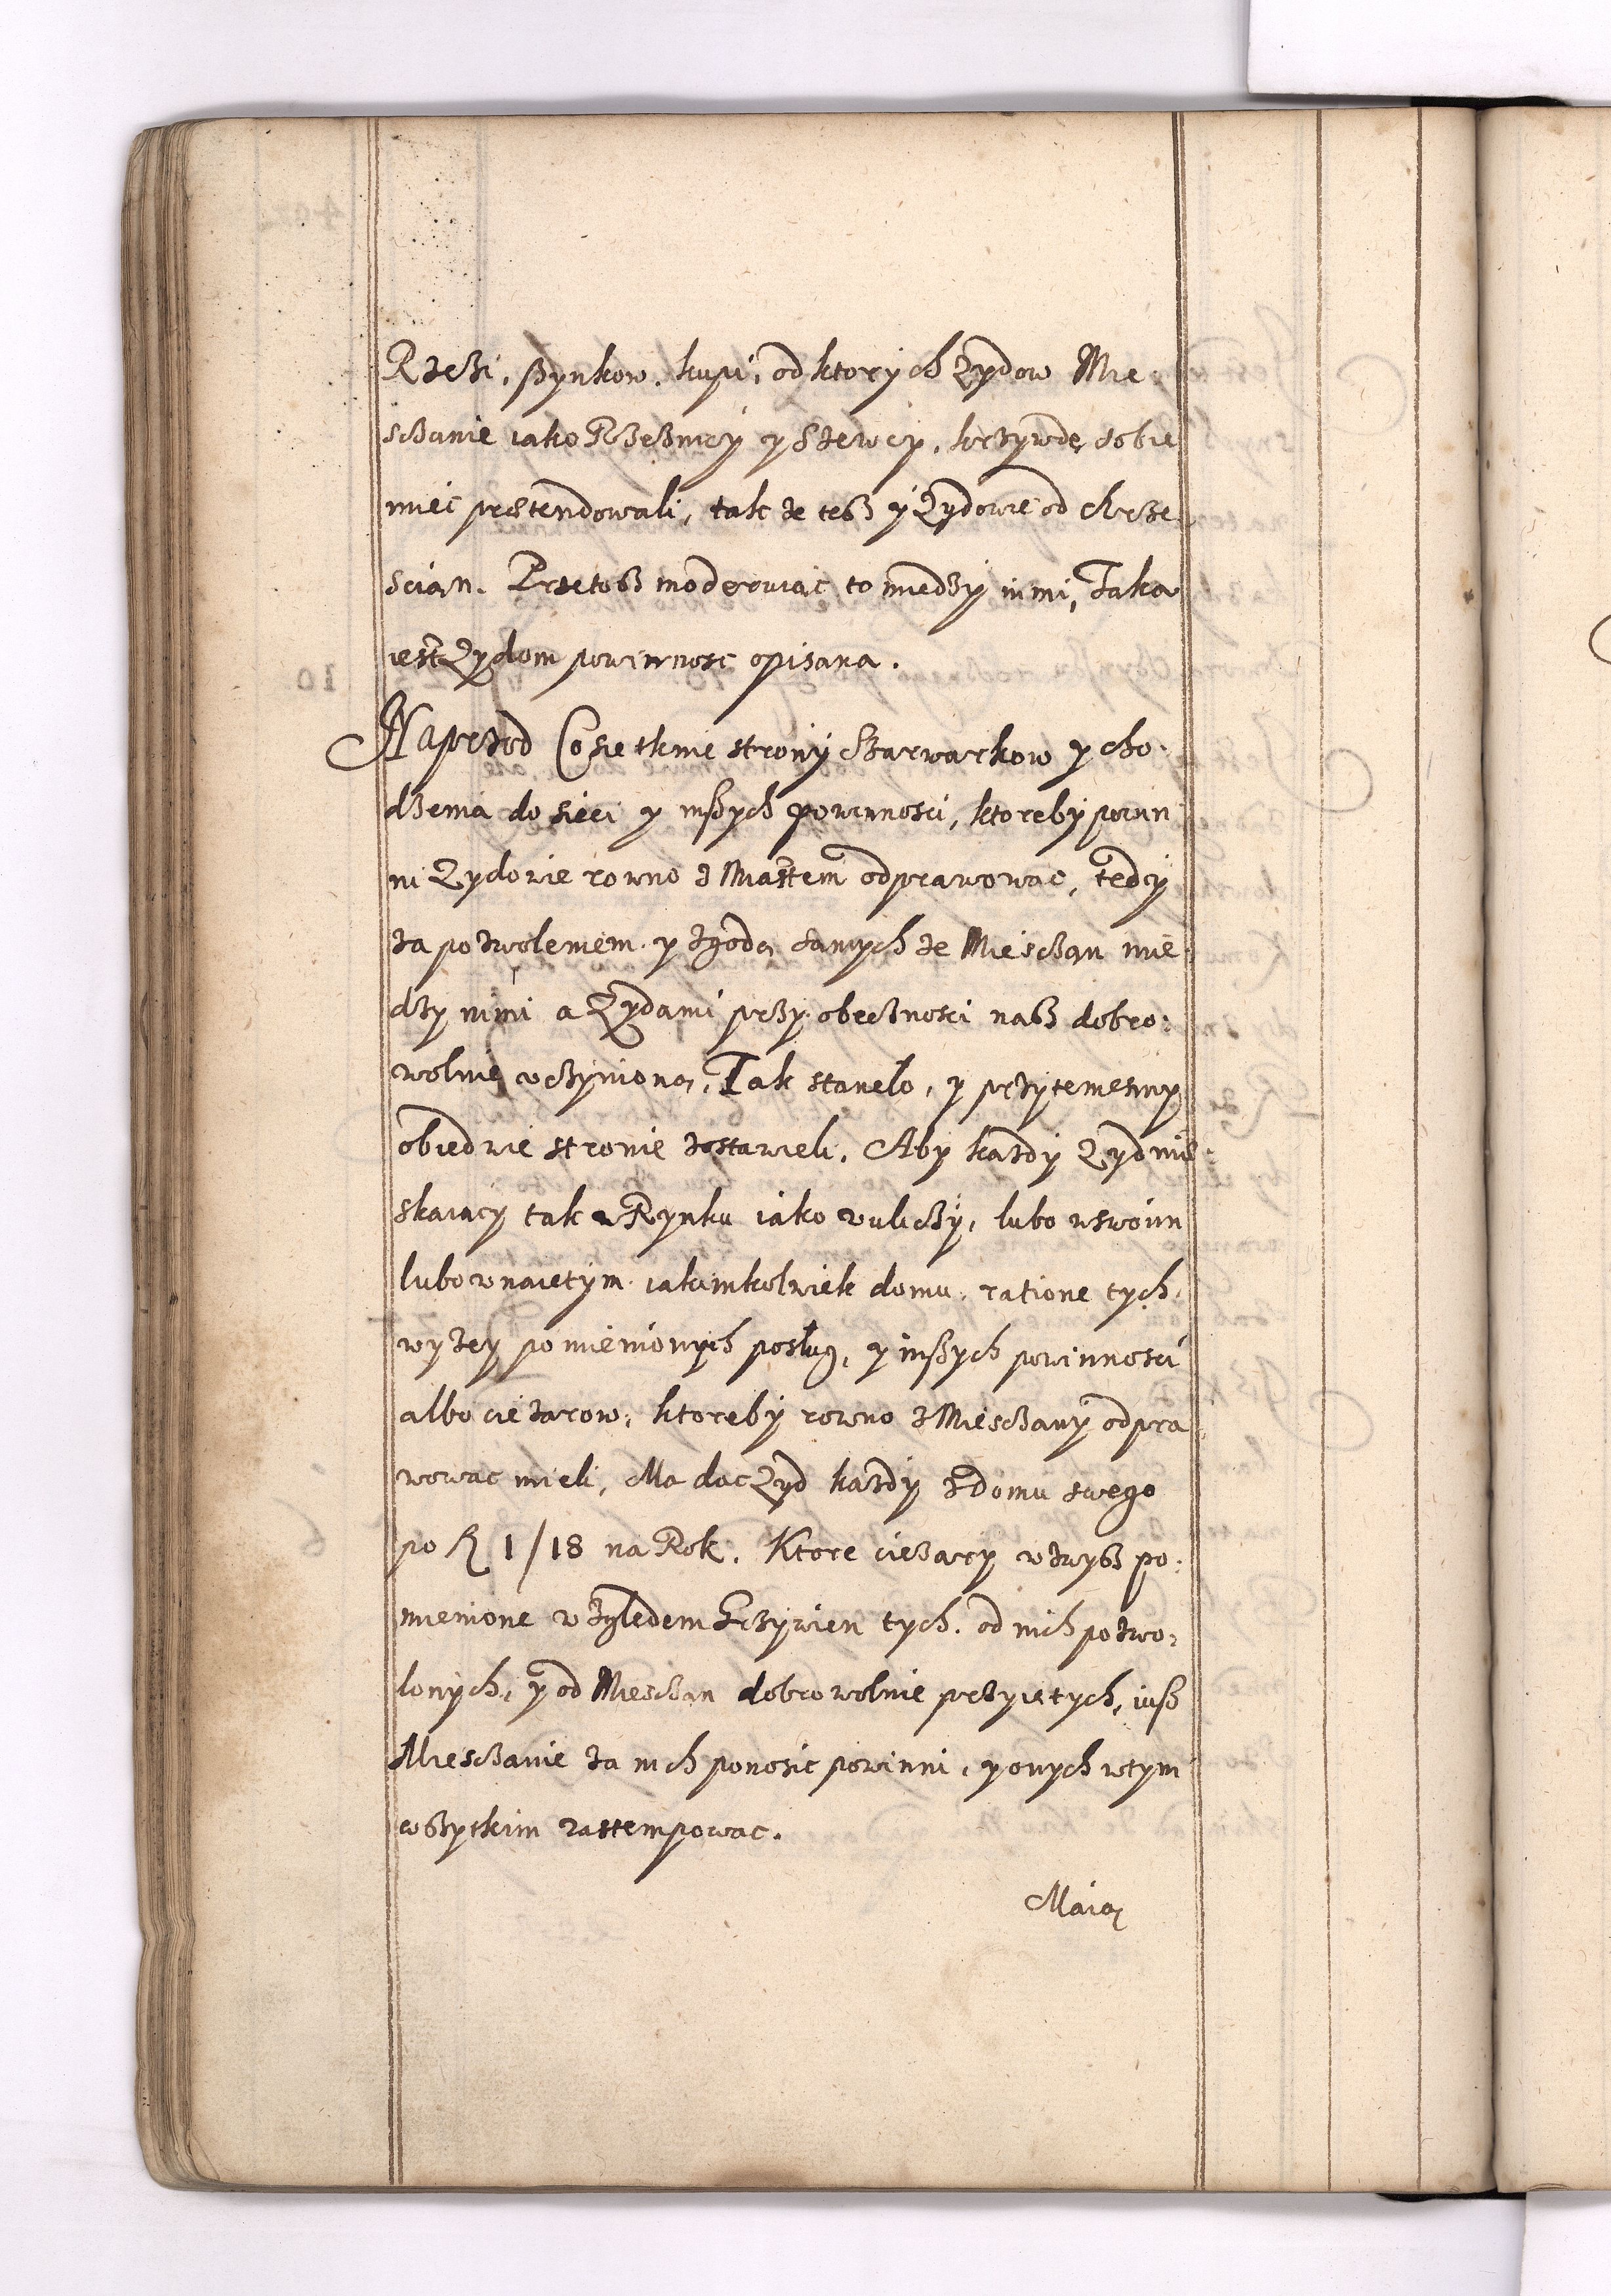 Rzeźi, szynkow, kupi, od ktorych Zydow Mie-
sczanie iako Rzeznicy y Szewcy, krzywdę sobie
mieć prætendowali, tak że tesz y Zydowie od chrze
scian. Przetosz moderuiąc to miedzy nimi, Taka
iest Zydom powinnosc opisana.
Naprzod Co się tknie strony Szarwarkow y cho-
dzenia do sieci y inszych powinnosci, ktoreby powin
ni Zydowie rowno z Miastem odprawowac, tedy
za pozwoleniem y zgodą samych ze Miesczan mie
dzy nimi a Zydami przy obecznosci nasz dobro-
wolnie uczynioną, Tak stanęło, y przytemesmy
obiedwie stronie zostawieli. Aby kazdy Zyd mie-
skaiący tak w Rynku iako w uliczy, lubo w swoim
lubo w naiętym iakimkolwiek domu, ratione tych
wyzey pomienionych posług, y inszych powinnosci
albo cięzarow, ktoreby rowno z Miesczany odpra
wowac mieli, Ma dac Zyd kazdy z domu swego
po fl 1/18 na Rok. Ktore ciezary wzwysz po-
mienione względem Grzywien tych od nich pozwo-
lonych, y od Miesczan dobrowolnie przyiętych, iusz
Miesczanie za nich ponosic powinni, y onych w tym
wszytkim zastempowac.
Maią